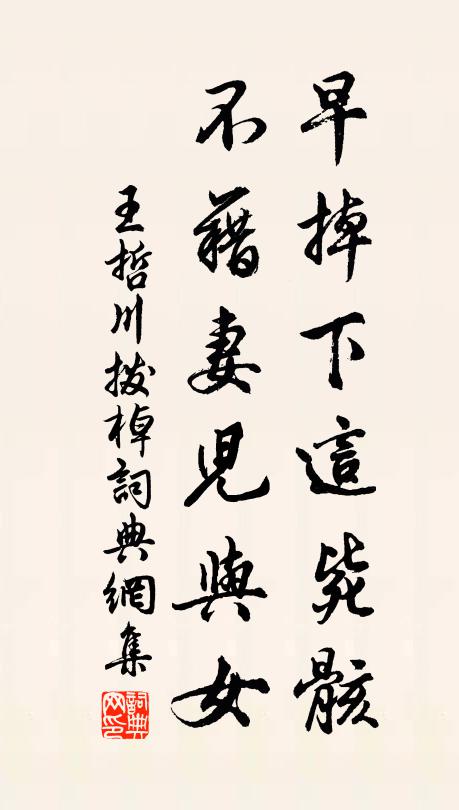 早掉下這尡骸
不藉妻兒與女
王哲川拨棹詞典網集
詞典网印